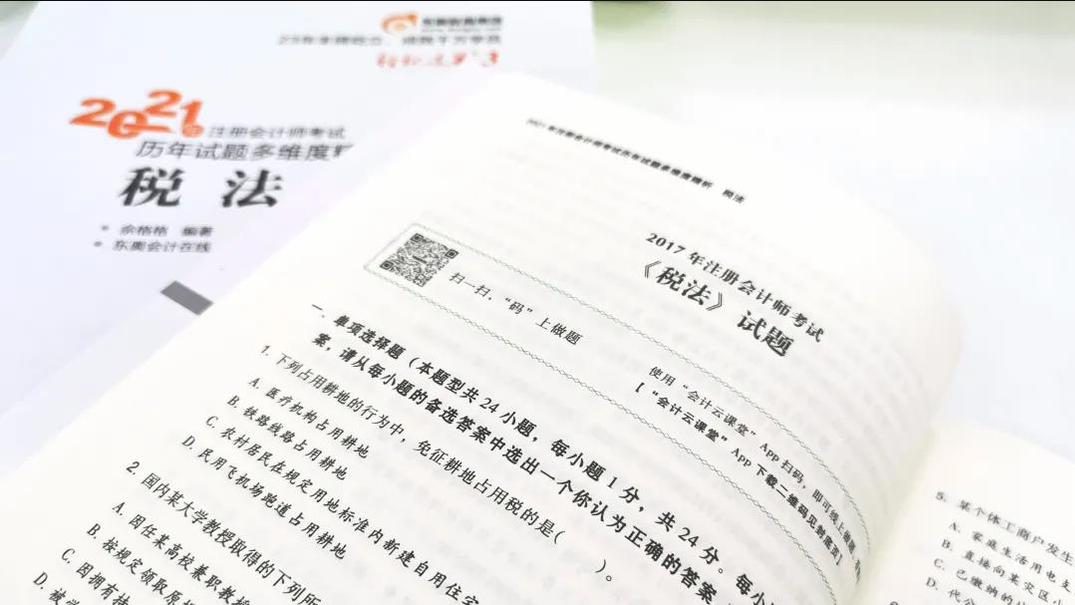 2021年注册会计师考试
历年试题多维度
税法
余格格 编著
东奥会计在线
2021年注册会计师考试历年试题多维度精析 税法
2017年注册会计师考试
《税法》试题
扫一扫，“码”上做题
使用“会计云课堂”App扫码，即可线上做题
【“会计云课堂”App下载二维码见封底页】
一、单项选择题（本题型共24小题，每小题1分，共24分。每小
案，请从每小题的备选答案中选出一个你认为正确的答案
1. 下列占用耕地的行为中，免征耕地占用税的是（　　）。
A. 医疗机构占用耕地
B. 铁路线路占用耕地
C. 农村居民在规定用地标准内新建自用住宅
D. 民用飞机场跑道占用耕地
2. 国内某大学教授取得的下列所
A. 因任某高校兼职教授
B. 按规定领取原
C. 因拥有持
D. 被学
5. 某个体工商户发生
A. 家庭生活用电支
B. 直接向某灾区小
C. 已缴纳的
D. 代公